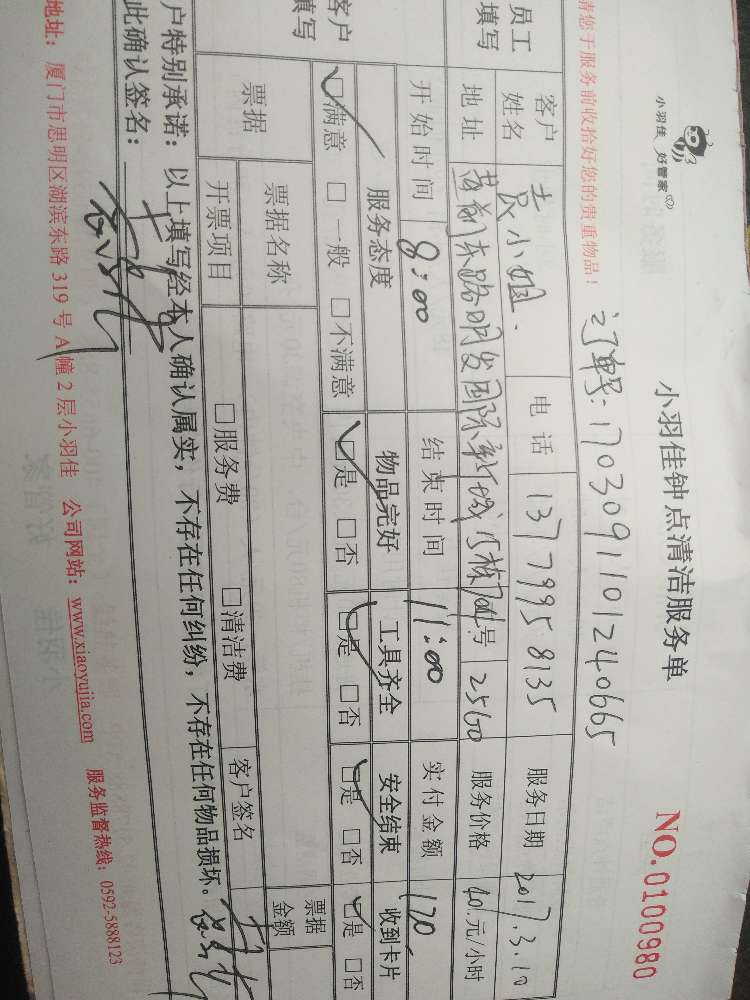 小羽佳 好管家
小羽佳钟点清洁服务单
NO.0100980
订单号:1703091101240665
请您于服务前收拾好您的贵重物品!
员工填写
客户姓名 袁小姐. 电话 13779958135 服务日期 2017.3.10
地址 莲前东路明发国际新城 704号 2560 服务价格 40.元/小时
开始时间 8:00 结束时间 11:00 实付金额 120
客户填写
服务态度 物品完好 工具齐全 安全结束 收到卡片
☑满意 □一般 □不满意 ☑是 □否 ☑是 □否 ☑是 □否 ☑是 □否
票据 票据名称 票据金额
开票项目 □服务费 □清洁费 客户签名
客户特别承诺:以上填写经本人确认属实,不存在任何纠纷,不存在任何物品损坏。
此确认签名:
地址:厦门市思明区湖滨东路319号A幢2层小羽佳 公司网站:www.xiaoyujia.com 服务监督热线:0592-5888123